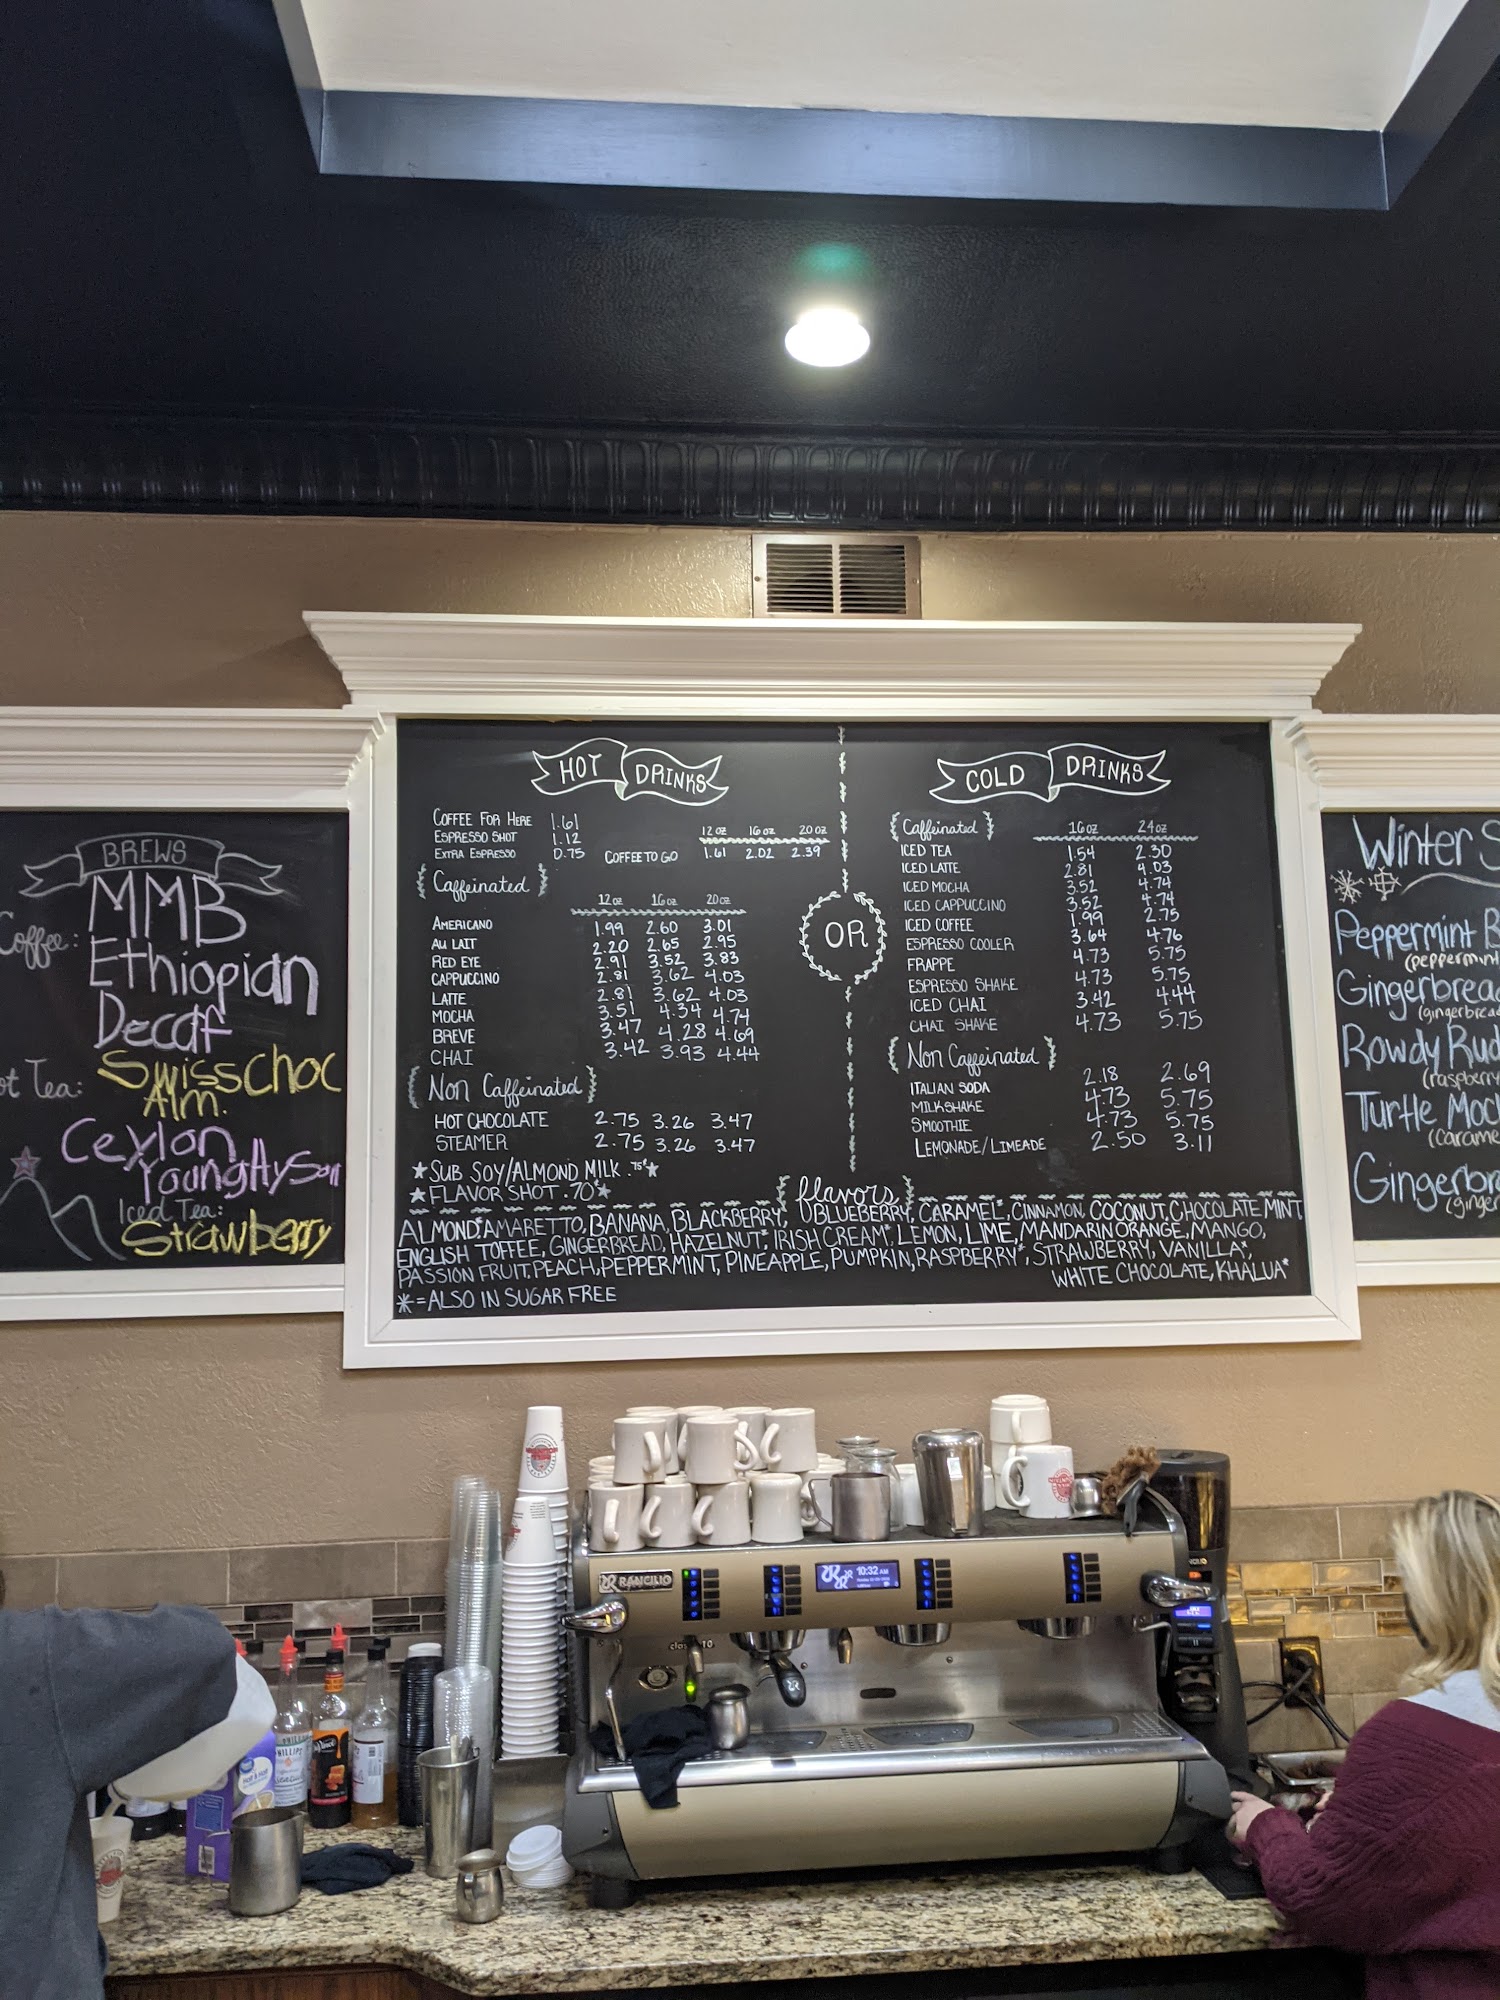 BREWS
Coffee:
MMB
Ethiopian
Decaf
Tea:
Swiss Choc
Alm.
Ceylon
Young Hyson
Iced Tea:
Strawberry
HOT DRINKS
COFFEE FOR HERE 1.61
ESPRESSO SHOT 1.12
EXTRA ESPRESSO 0.75
12 oz 16 oz 20 oz
COFFEE TO GO 1.61 2.02 2.39
Caffeinated
12 oz 16 oz 20 oz
AMERICANO 1.99 2.60 3.01
AU LAIT 2.20 2.65 2.95
RED EYE 2.91 3.52 3.83
CAPPUCCINO 2.81 3.62 4.03
LATTE 2.81 3.62 4.03
MOCHA 3.51 4.34 4.74
BREVE 3.47 4.28 4.69
CHAI 3.42 3.93 4.44
Non Caffeinated
HOT CHOCOLATE 2.75 3.26 3.47
STEAMER 2.75 3.26 3.47
★SUB SOY/ALMOND MILK .75¢★
★FLAVOR SHOT .70¢★
OR
COLD DRINKS
Caffeinated
16 oz 24 oz
ICED TEA 1.54 2.30
ICED LATTE 2.81 4.03
ICED MOCHA 3.52 4.74
ICED CAPPUCCINO 3.52 4.74
ICED COFFEE 1.99 2.75
ESPRESSO COOLER 3.64 4.76
FRAPPE 4.73 5.75
ESPRESSO SHAKE 4.73 5.75
ICED CHAI 3.42 4.44
CHAI SHAKE 4.73 5.75
Non Caffeinated
ITALIAN SODA 2.18 2.69
MILKSHAKE 4.73 5.75
SMOOTHIE 4.73 5.75
LEMONADE/LIMEADE 2.50 3.11
flavors
ALMOND,* AMARETTO, BANANA, BLACKBERRY, BLUEBERRY, CARAMEL,* CINNAMON, COCONUT, CHOCOLATE MINT,
ENGLISH TOFFEE, GINGERBREAD, HAZELNUT,* IRISH CREAM,* LEMON, LIME, MANDARIN ORANGE, MANGO,
PASSION FRUIT, PEACH, PEPPERMINT, PINEAPPLE, PUMPKIN, RASPBERRY*, STRAWBERRY, VANILLA*,
WHITE CHOCOLATE, KHALUA*
*=ALSO IN SUGAR FREE
Winter S
Peppermint B
(peppermint
Gingerbrea
(gingerbrea
Rowdy Rud
(raspberry
Turtle Moc
(carame
Gingerbre
(ginger
RANCILIO
10:32 AM